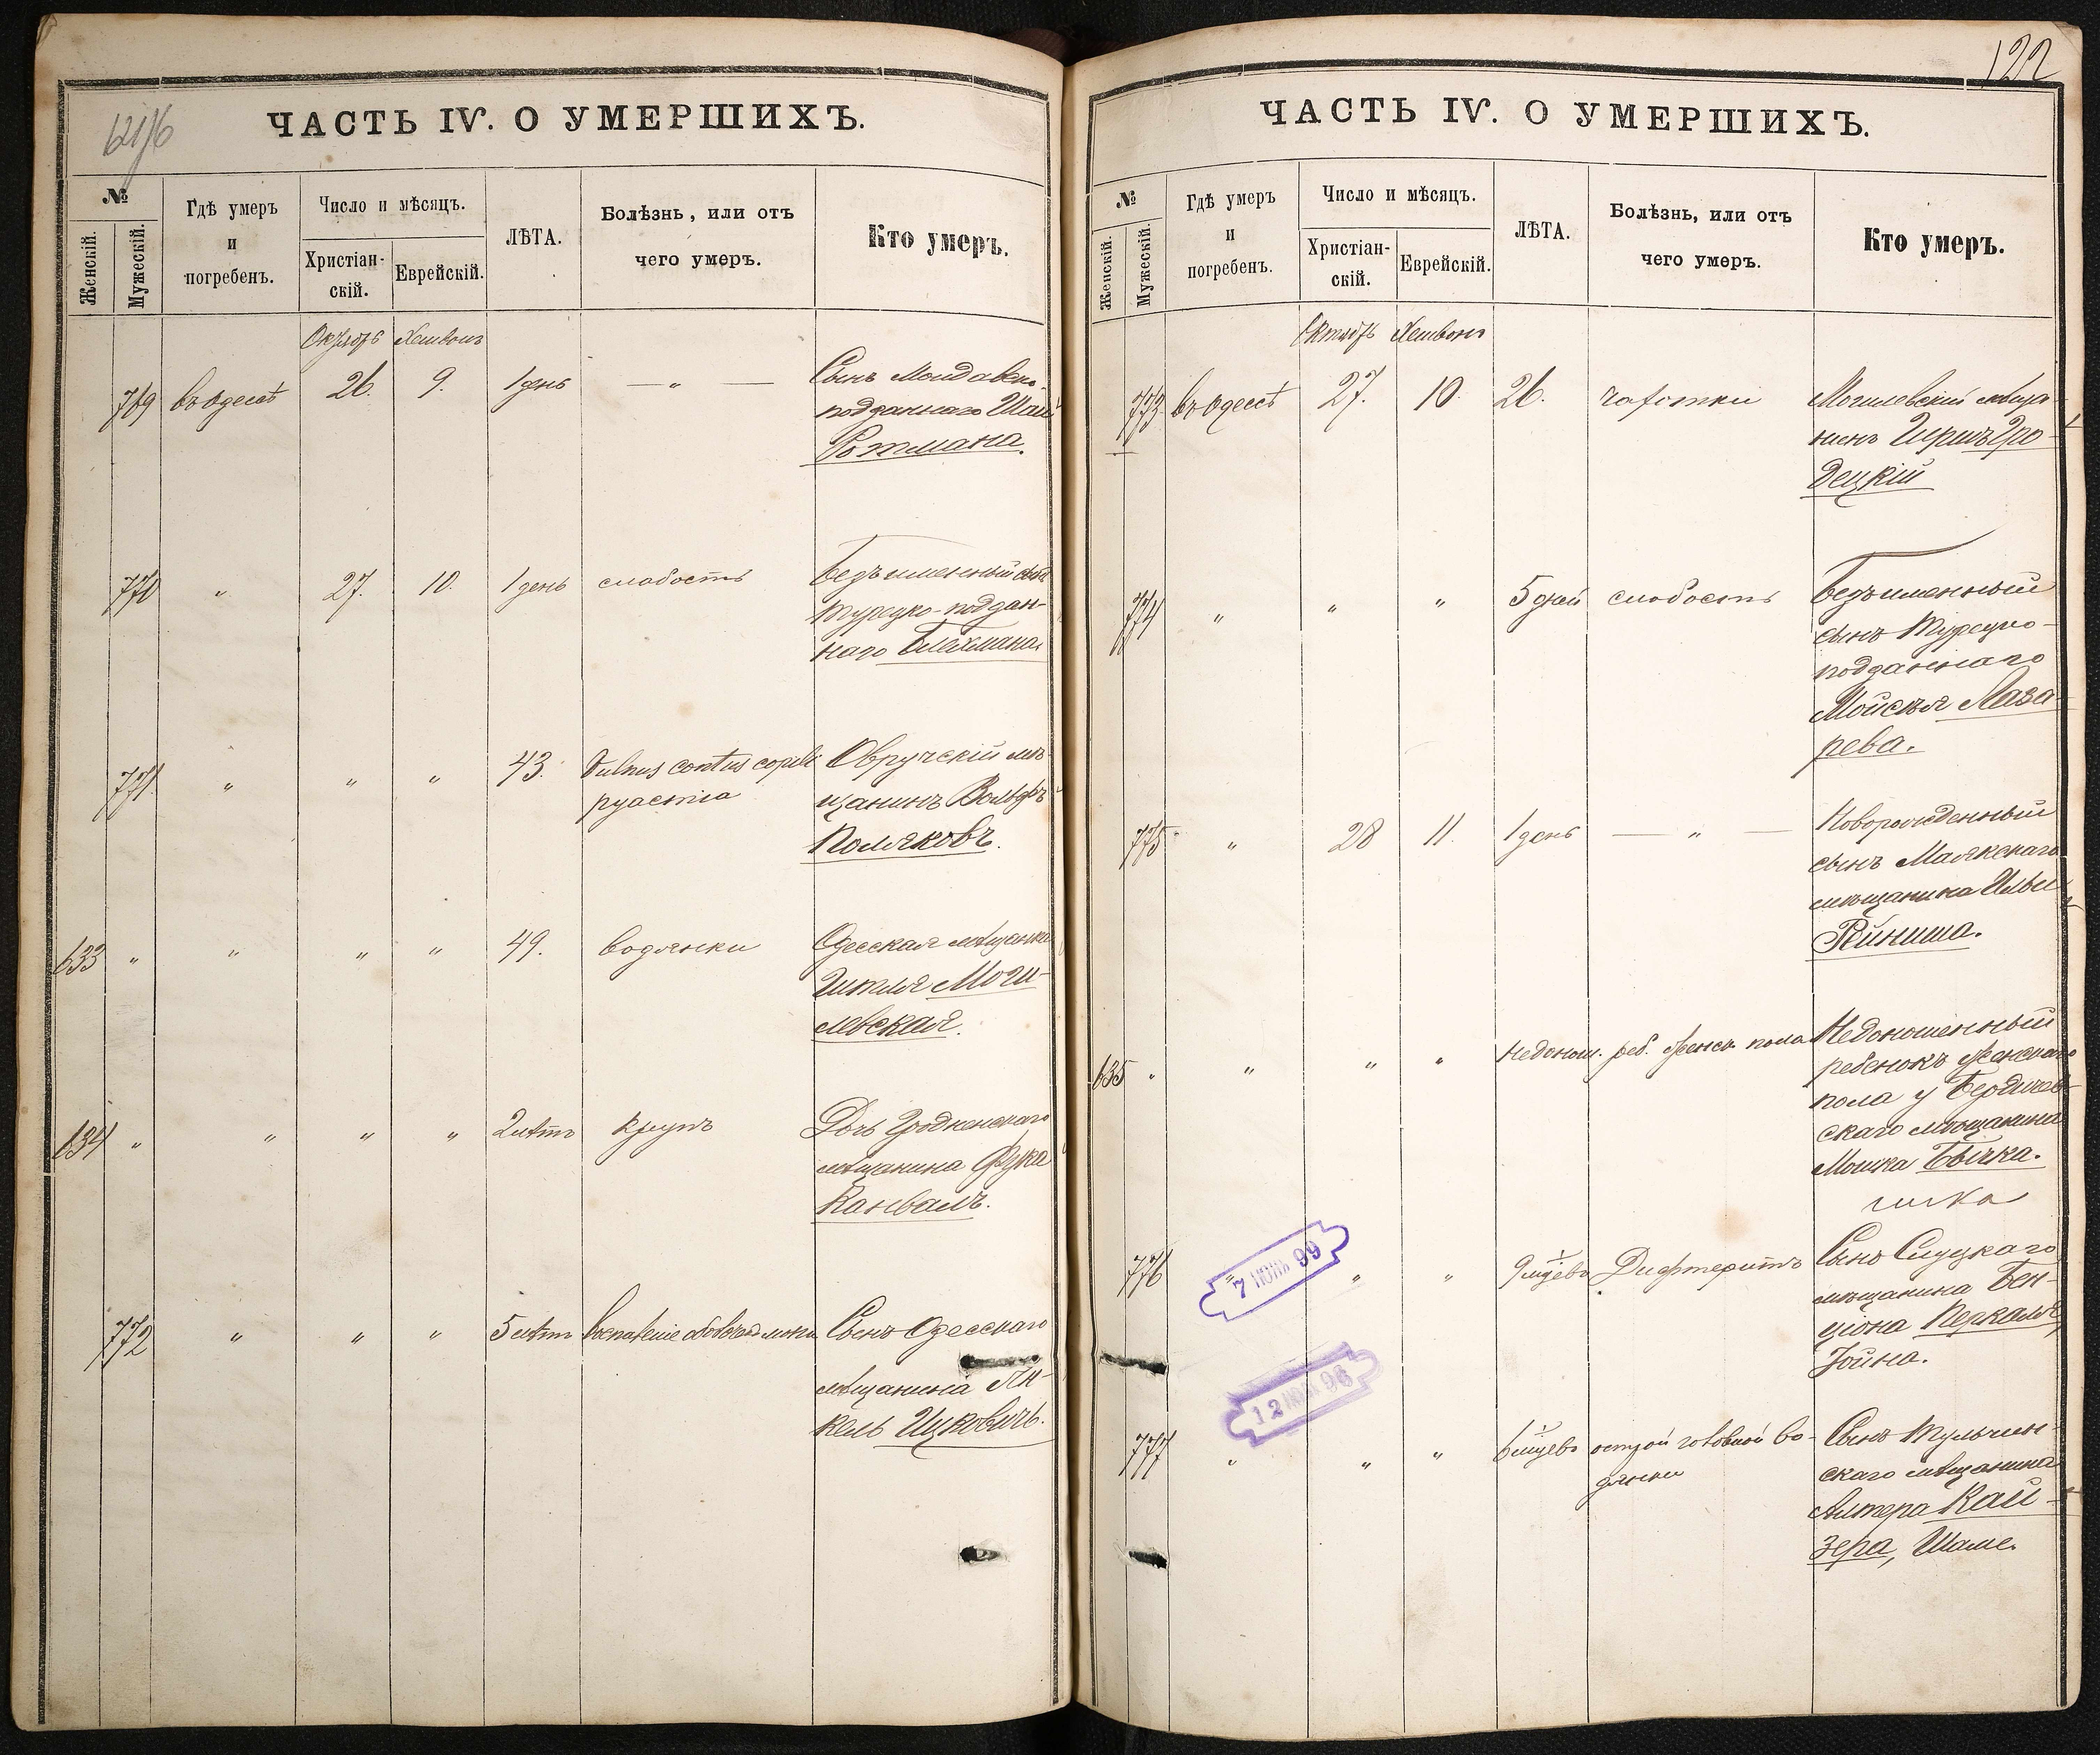 6216
ЧАСТЬ IV. О УМЕРШИХЪ.
№
Женскій.
Мужескій.
Гдѣ умеръ
и
погребенъ.
Число и мѣсяцъ.
Христіан-
скій.
Еврейскій.
ЛѢТА.
Болѣзнь, или отъ
чего умеръ.
Кто умеръ.
Октябрь Хешвонъ
769 въ Одессѣ 26. 9. 1 день — „ — Сынъ Молдавско-
подданнаго
Ротмана.
770 „ 27. 10. 1 день слабость Безъименный сынъ
турецко-поддан-
наго Блехмана
771. „ „ „ 43. Vulnus contus capili Овручскій мѣ-
щанинъ Вольфъ
Поляковъ.
633 „ „ „ „ 49. водянки Одесская мѣщанка
Гитля Моги-
левская.
634 „ „ „ „ 2 лѣтъ крупъ Дочь Гродненскаго
мѣщанина
Канвалъ.
772 „ „ „ 5 лѣтъ воспаленіе Сынъ Одесскаго
мѣщанина Ян-
кель Ицковичъ.
122
ЧАСТЬ IV. О УМЕРШИХЪ.
№
Женскій.
Мужескій.
Гдѣ умеръ
и
погребенъ.
Число и мѣсяцъ.
Христіан-
скій.
Еврейскій.
ЛѢТА.
Болѣзнь, или отъ
чего умеръ.
Кто умеръ.
Октябрь Хешвонъ
773. въ Одессѣ 27. 10. 26. чахотки Могилевскій мѣща-
нинъ Гершъ Гро-
децкій
774 „ „ „ 5 дней слабость Безъименный
сынъ Турецко-
подданнаго
Мойсея Лаза-
рева.
775 „ 28 11. 1 день — „ — Новорожденный
сынъ Маякскаго
мѣщанина Ильи
Рейниша.
635 „ „ „ „ Недонош. реб. женск. пола Недоношенный
ребенокъ женскаго
пола у Бердичев-
скаго мѣщанина
Мошка Бычка.
чика
776 „ „ „ 9 мѣсцевъ Дифтеритъ Сынъ Слуцкаго
мѣщанина Бен-
ціона Перкаля,
Іойна.
7 ІЮН 99
12 ІЮН 96
777 „ „ „ 6 мѣсцевъ острой головной во-
дянки Сынъ Тульчин-
скаго мѣщанина
Алтера Кай-
зера, Шаме.